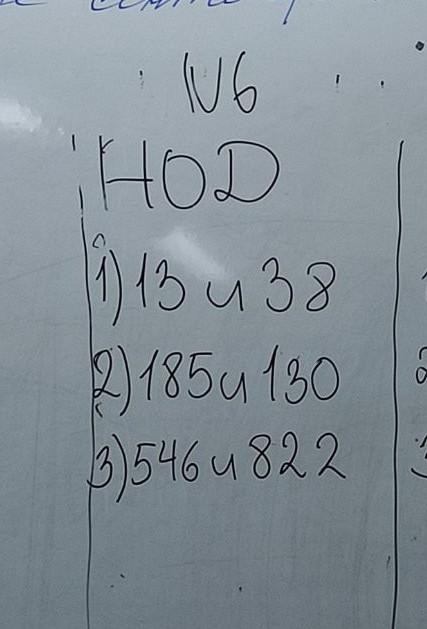 №6
НОД
1) 13 и 38
2) 185 и 130
3) 546 и 822